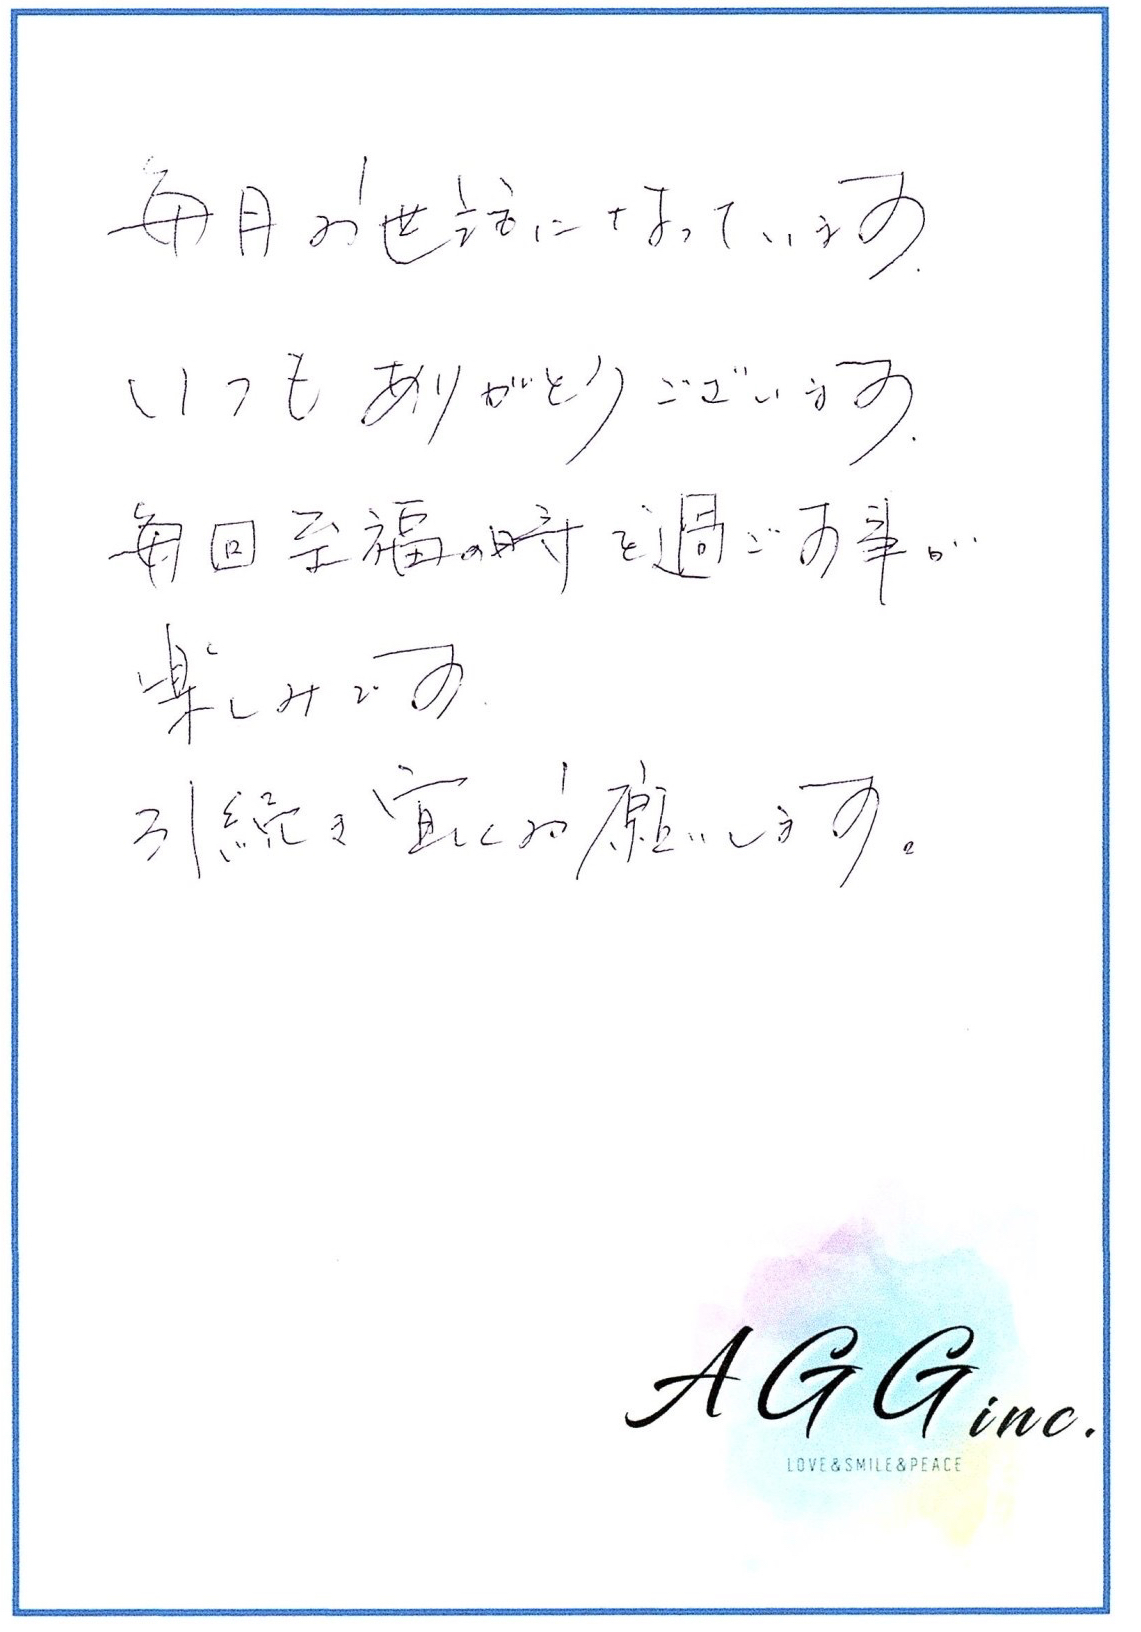 毎月お世話になっています.
いつもありがとうございます.
毎回至福の時を過ごす事が
楽しみです.
引続き宜しくお願いします。
AGG inc.
LOVE&SMILE&PEACE